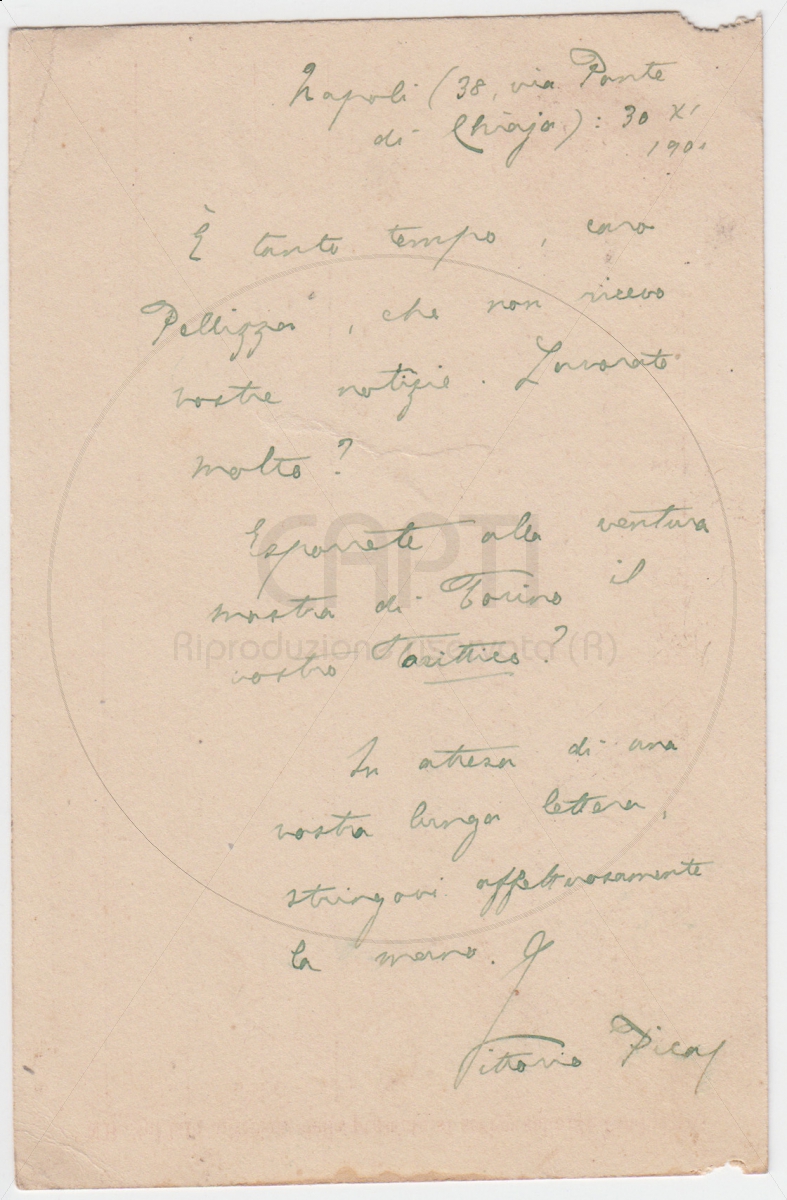 Napoli (38, via Ponte
di Chiaja): 30 XI
190
È tanto tempo, caro
Pellizza, che non ricevo
vostre notizie. Lavorate
molto?
Esporrete alla ventura
mostra di Torino il
vostro
In attesa di una
vostra lunga lettera,
stringovi affettuosamente
la mano.
Vittorio Pica
CAPTI
Riproduzione riservata (R)